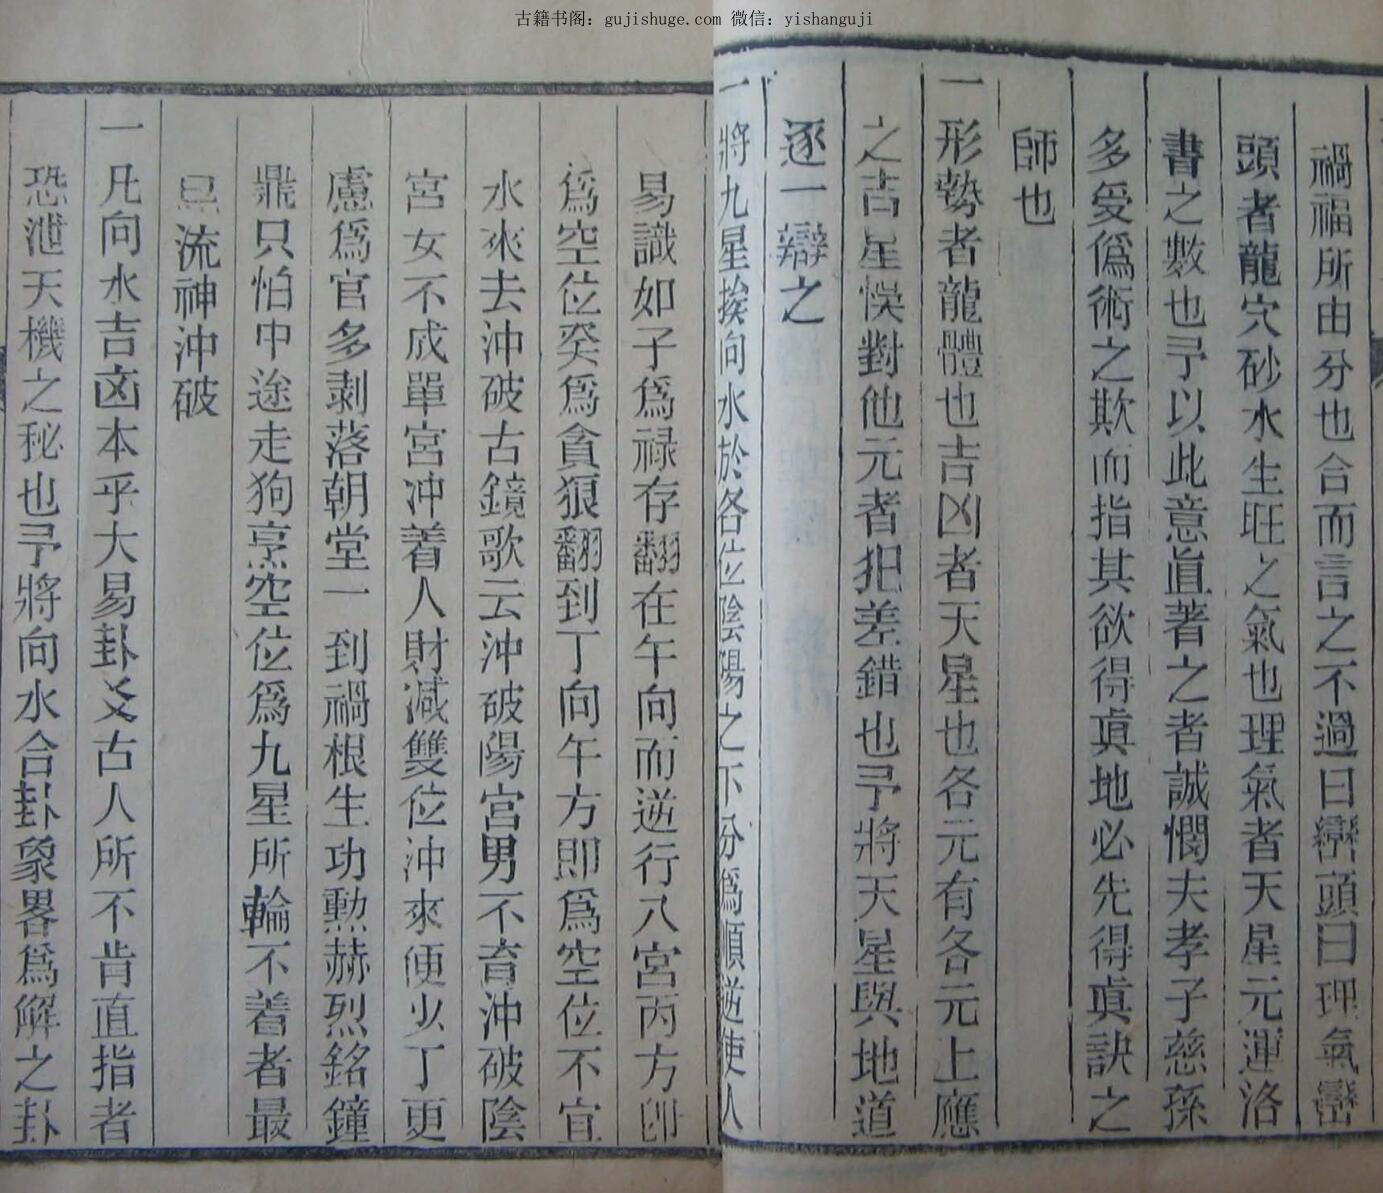 古籍书阁：gujishuge.com 微信：yishanguji
禍福所由分也合而言之不過曰巒頭曰理氣巒
頭者龍穴砂水生旺之氣也理氣者天星元運洛
書之數也予以此意眞著之者誠憫夫孝子慈孫
多受僞術之欺而指其欲得眞地必先得眞訣之
師也
一形勢者龍體也吉凶者天星也各元有各元上應
之吉星悞對他元者犯差錯也予將天星與地道
逐一辯之
一將九星挨向水於各位陰陽之下分爲順逆使人
易識如子爲禄存翻在午向而逆行八宮丙方卽
爲空位癸爲貪狼翻到丁向午方即爲空位不宜
水來去沖破古鏡歌云沖破陽宮男不育沖破陰
宮女不成單宮冲着人財減雙位沖來便少丁更
慮爲官多剥落朝堂一到禍根生功勳赫烈銘鐘
鼎只怕中途走狗烹空位爲九星所輪不着者最
忌流神沖破
一凡向水吉凶本乎大易卦爻古人所不肯直指者
恐泄天機之秘也予將向水合卦象畧爲解之卦